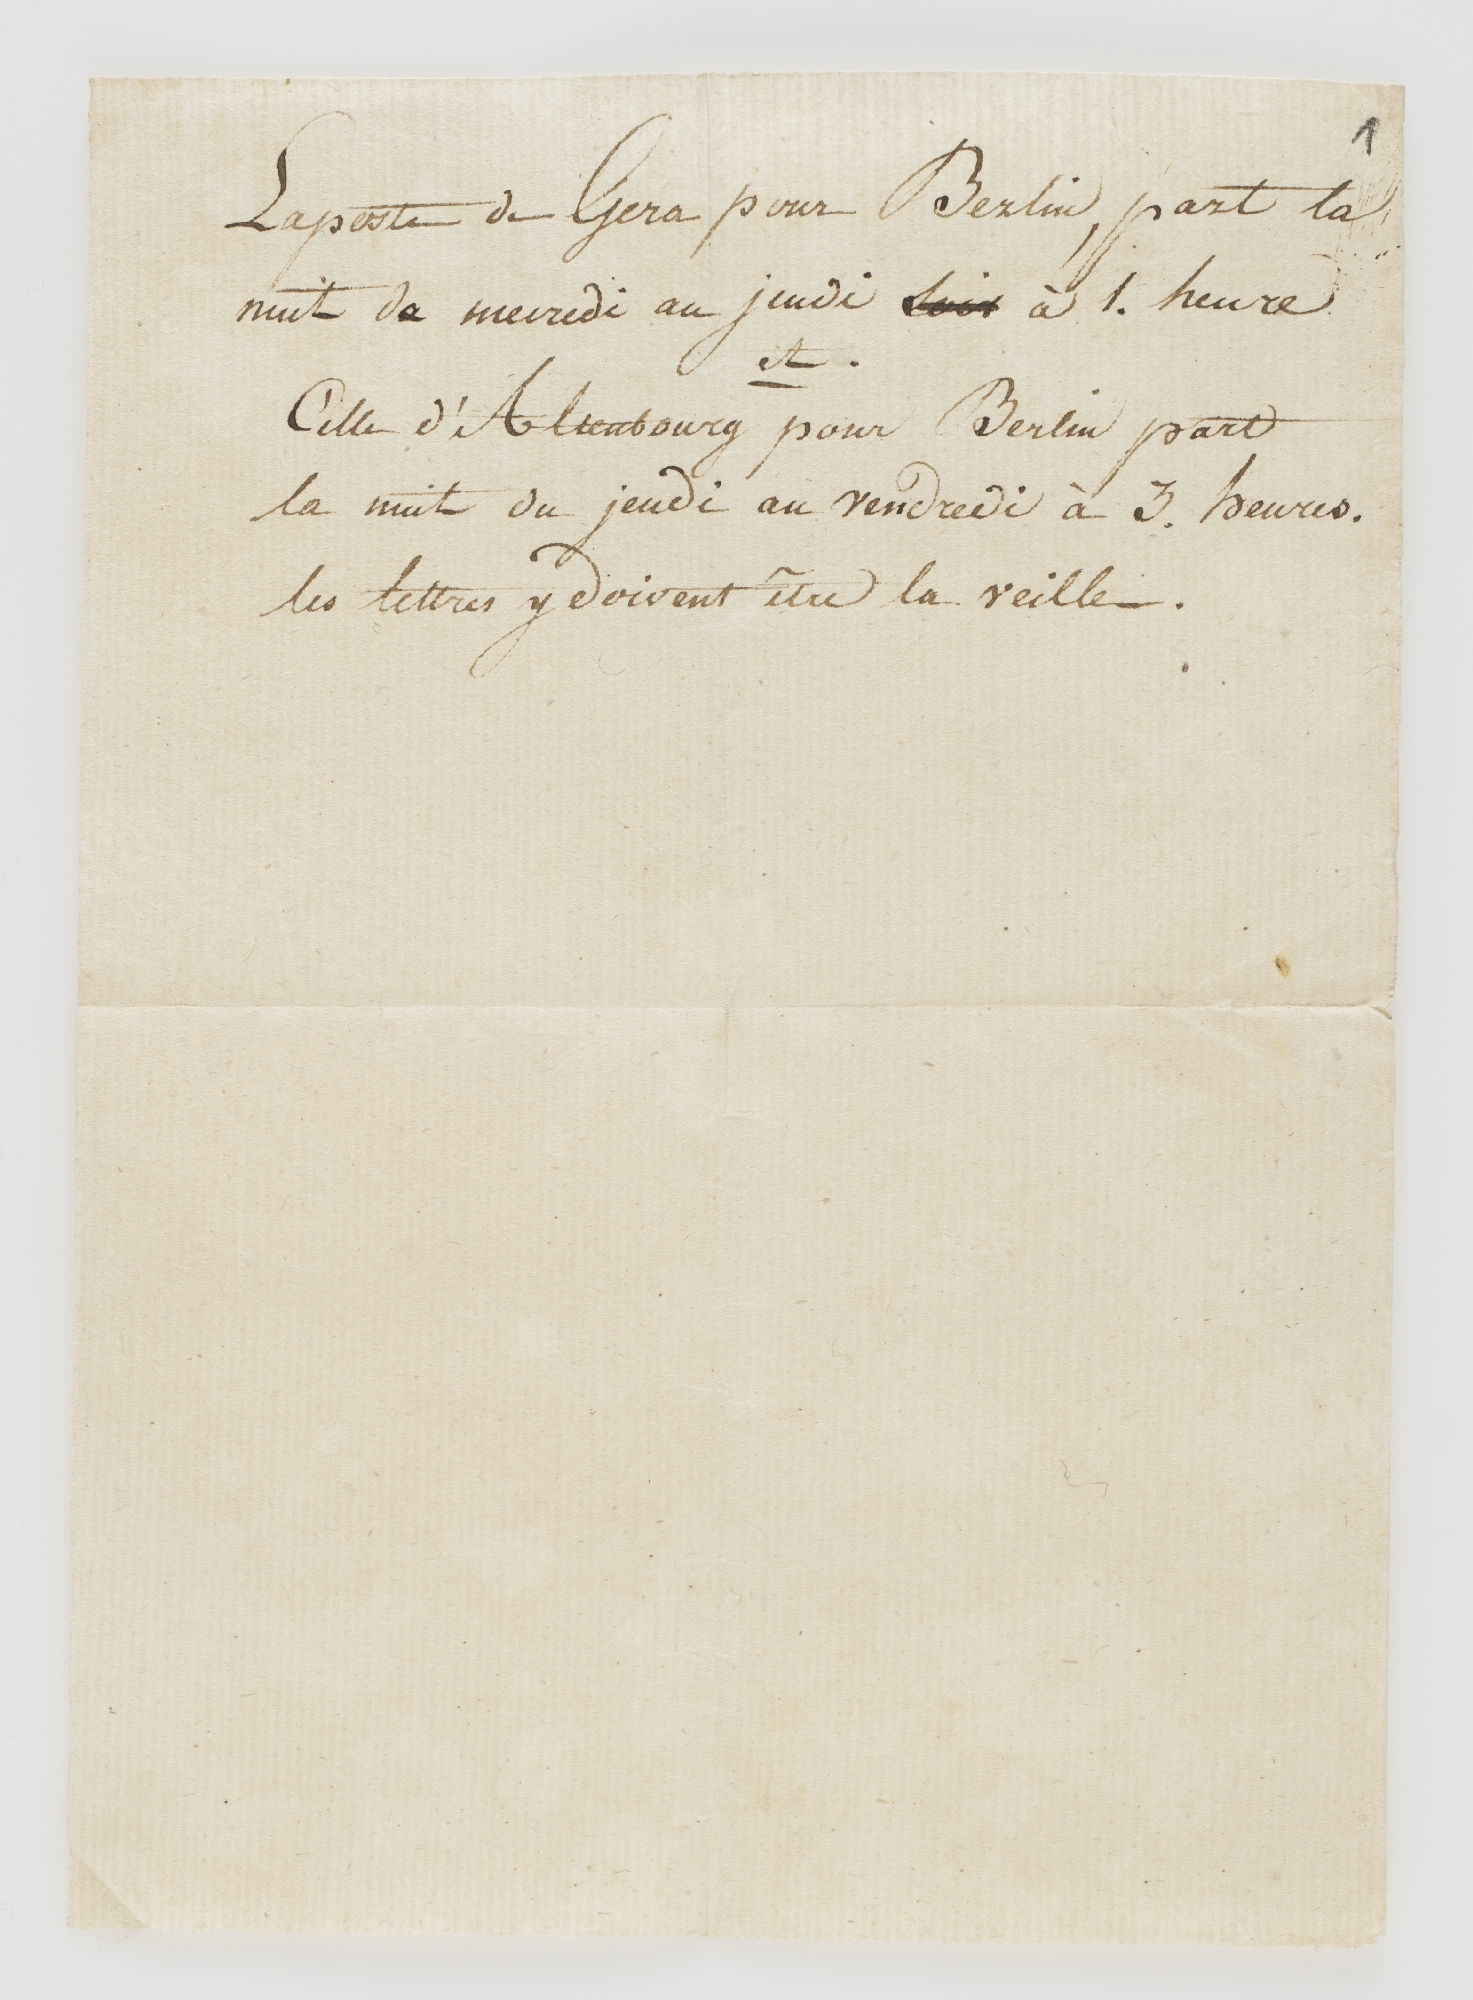 1
Laposte de Gera pour Berlin, part la
nuit de mecredi au jeudi soir à 1. heure
et.
Celle d'Altenbourg pour Berlin part
la nuit du jeudi au vendredi à 3. heures.
les lettres y doivent être la veille.